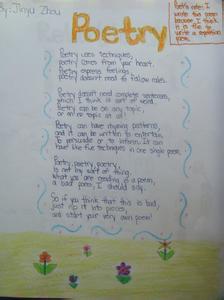 By: Jinyu Zhou
Poetry
Poet's note: I
write this poem
because I think
it is fun to
write a repetition
poem.
Poetry uses techniques,
poetry comes from your heart.
Poetry express feelings
poetry doesn't need to follow rules.
Poetry doesn't need complete sentences,
which I think is sort of weird.
Poetry can be on any topic,
or on no topic at all!
Poetry can have rhyming patterns,
and it can be written to entertain,
To persuade or to inform. It can
have like five techniques in one single poem.
Poetry, poetry, poetry,
is not my sort of thing.
What you are reading is a poem,
a bad poem, I should say.
So if you think that this is bad,
just rip it into pieces,
and start your very own poem!